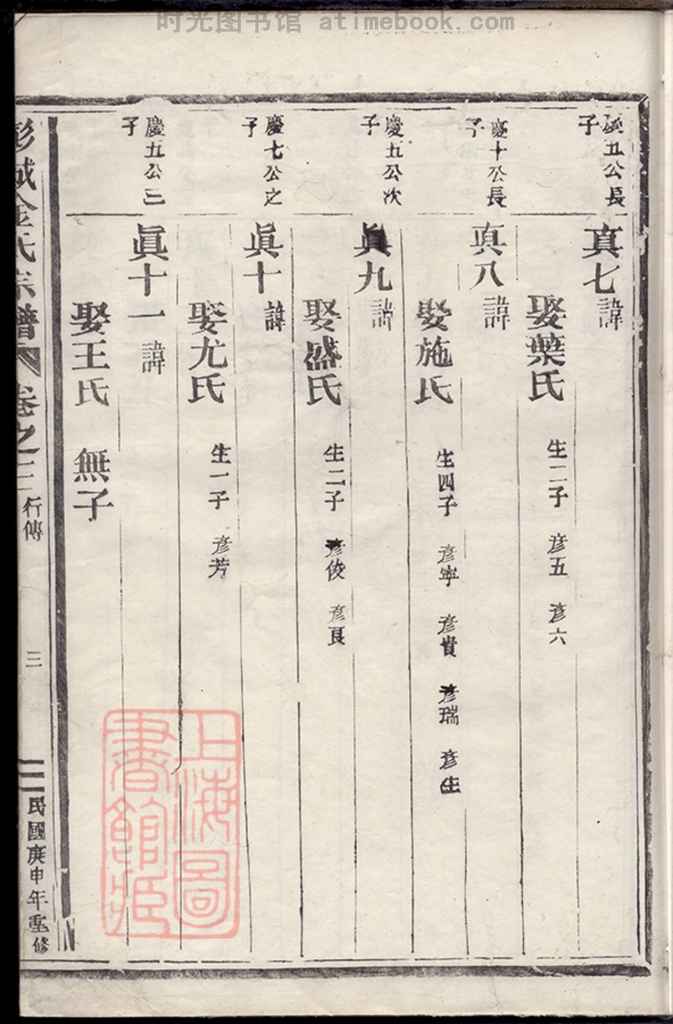 时光图书馆 atimebook.com
慶五公長子
真七 諱
娶葉氏 生二子 彦五 彦六
慶十公長子
真八 諱
娶施氏 生四子 彦寧 彦貴 彦瑞 彦生
慶五公次子
眞九 諱
娶盛氏 生二子 彦俊 彦良
慶七公之子
眞十 諱
娶尤氏 生一子 彦芳
慶五公三子
眞十一 諱
娶王氏 無子
彭城金氏宗譜 卷之三 行傳 三 民國庚申年重修
上海圖書館藏